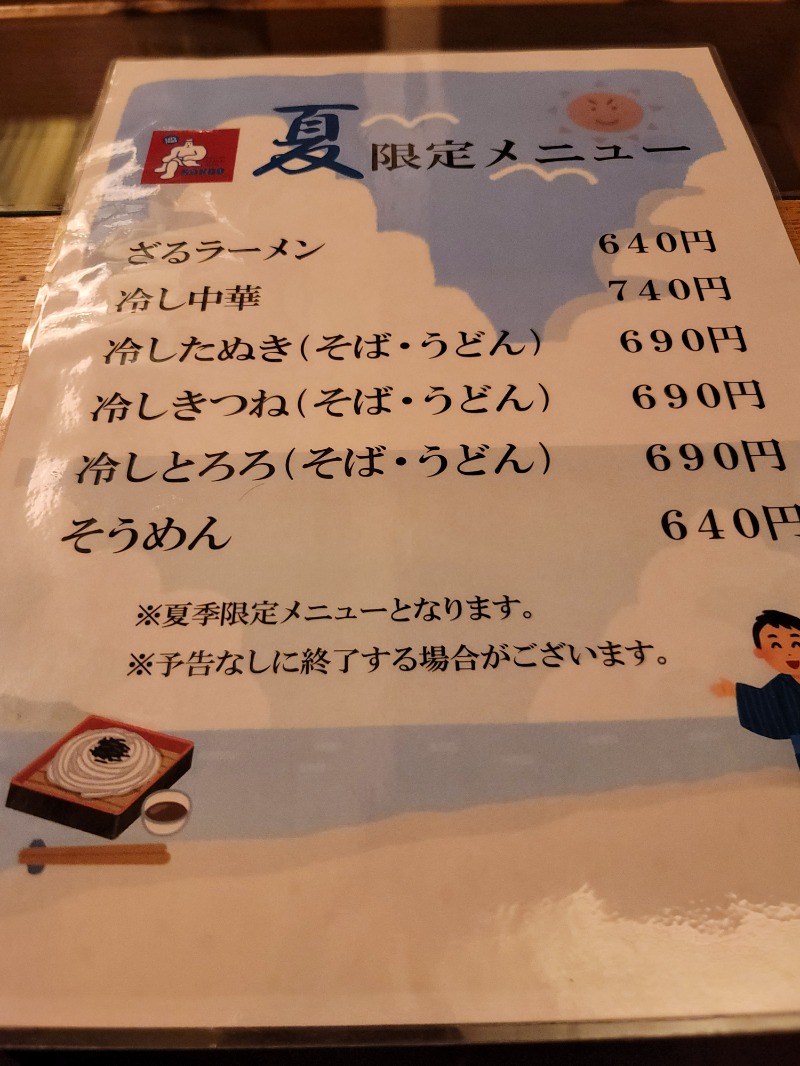 夏限定メニュー
ざるラーメン 640円
冷し中華 740円
冷したぬき(そば・うどん) 690円
冷しきつね(そば・うどん) 690円
冷しとろろ(そば・うどん) 690円
そうめん 640円
※夏季限定メニューとなります。
※予告なしに終了する場合がございます。